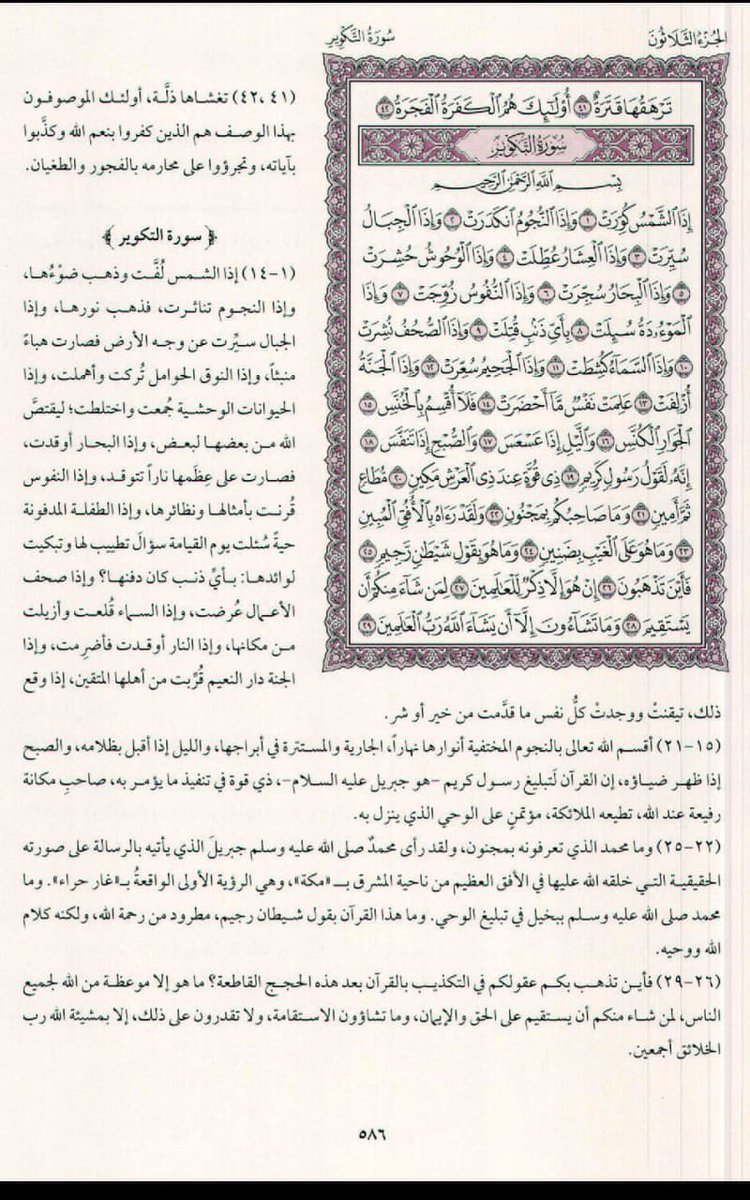 الجزء الثلاثون
سورة التكوير
تَرْهَقُهَا قَتَرَةٌ ٤١ أُوْلَٰٓئِكَ هُمُ ٱلْكَفَرَةُ ٱلْفَجَرَةُ ٤٢
سُورَةُ التَّكْوِيرِ
بِسْمِ ٱللَّهِ ٱلرَّحْمَٰنِ ٱلرَّحِيمِ
إِذَا ٱلشَّمْسُ كُوِّرَتْ ١ وَإِذَا ٱلنُّجُومُ ٱنكَدَرَتْ ٢ وَإِذَا ٱلْجِبَالُ
سُيِّرَتْ ٣ وَإِذَا ٱلْعِشَارُ عُطِّلَتْ ٤ وَإِذَا ٱلْوُحُوشُ حُشِرَتْ
٥ وَإِذَا ٱلْبِحَارُ سُجِّرَتْ ٦ وَإِذَا ٱلنُّفُوسُ زُوِّجَتْ ٧ وَإِذَا
ٱلْمَوْءُۥدَةُ سُئِلَتْ ٨ بِأَىِّ ذَنۢبٍ قُتِلَتْ ٩ وَإِذَا ٱلصُّحُفُ نُشِرَتْ
١٠ وَإِذَا ٱلسَّمَآءُ كُشِطَتْ ١١ وَإِذَا ٱلْجَحِيمُ سُعِّرَتْ ١٢ وَإِذَا ٱلْجَنَّةُ
أُزْلِفَتْ ١٣ عَلِمَتْ نَفْسٌ مَّآ أَحْضَرَتْ ١٤ فَلَآ أُقْسِمُ بِٱلْخُنَّسِ ١٥
ٱلْجَوَارِ ٱلْكُنَّسِ ١٦ وَٱلَّيْلِ إِذَا عَسْعَسَ ١٧ وَٱلصُّبْحِ إِذَا تَنَفَّسَ ١٨
إِنَّهُۥ لَقَوْلُ رَسُولٍ كَرِيمٍ ١٩ ذِى قُوَّةٍ عِندَ ذِى ٱلْعَرْشِ مَكِينٍ ٢٠ مُّطَاعٍ
ثَمَّ أَمِينٍ ٢١ وَمَا صَاحِبُكُم بِمَجْنُونٍ ٢٢ وَلَقَدْ رَءَاهُ بِٱلْأُفُقِ ٱلْمُبِينِ
٢٣ وَمَا هُوَ عَلَى ٱلْغَيْبِ بِضَنِينٍ ٢٤ وَمَا هُوَ بِقَوْلِ شَيْطَٰنٍ رَّجِيمٍ ٢٥
فَأَيْنَ تَذْهَبُونَ ٢٦ إِنْ هُوَ إِلَّا ذِكْرٌ لِّلْعَٰلَمِينَ ٢٧ لِمَن شَآءَ مِنكُمْ أَن
يَسْتَقِيمَ ٢٨ وَمَا تَشَآءُونَ إِلَّآ أَن يَشَآءَ ٱللَّهُ رَبُّ ٱلْعَٰلَمِينَ ٢٩
(٤١، ٤٢) تغشاها ذلَّة، أولئك الموصوفون
بهذا الوصف هم الذين كفروا بنعم الله وكذَّبوا
بآياته، وتجرؤوا على محارمه بالفجور والطغيان.
﴿سورة التكوير﴾
(١-١٤) إذا الشمس لُفَّت وذهب ضوْءُها،
وإذا النجوم تناثرت، فذهب نورها، وإذا
الجبال سيِّرت عن وجه الأرض فصارت هباءً
منبثاً، وإذا النوق الحوامل تُركت وأهملت، وإذا
الحيوانات الوحشية جُمعت واختلطت؛ ليقتصَّ
الله من بعضها لبعض، وإذا البحار أوقدت،
فصارت على عِظَمها ناراً تتوقد، وإذا النفوس
قُرنت بأمثالها ونظائرها، وإذا الطفلة المدفونة
حيةً سُئلت يوم القيامة سؤالَ تطييب لها وتبكيت
لوائدها: بأيِّ ذنب كان دفنها؟ وإذا صحف
الأعمال عُرضت، وإذا السماء قُلعت وأزيلت
من مكانها، وإذا النار أوقدت فأضرِمت، وإذا
الجنة دار النعيم قُرِّبت من أهلها المتقين، إذا وقع
ذلك، تيقنتْ ووجدتْ كلُّ نفس ما قدَّمت من خير أو شر.
(١٥-٢١) أقسم الله تعالى بالنجوم المختفية أنوارها نهاراً، الجارية والمستترة في أبراجها، والليل إذا أقبل بظلامه، والصبح
إذا ظهر ضياؤه، إن القرآن لَتبليغ رسول كريم -هو جبريل عليه السلام-، ذي قوة في تنفيذ ما يؤمر به، صاحبِ مكانة
رفيعة عند الله، تطيعه الملائكة، مؤتمنٍ على الوحي الذي ينزل به.
(٢٢-٢٥) وما محمد الذي تعرفونه بمجنون، ولقد رأى محمدٌ صلى الله عليه وسلم جبريلَ الذي يأتيه بالرسالة على صورته
الحقيقية التي خلقه الله عليها في الأفق العظيم من ناحية المشرق بـ «مكة»، وهي الرؤية الأولى الواقعةُ بـ«غار حراء». وما
محمد صلى الله عليه وسلم ببخيل في تبليغ الوحي. وما هذا القرآن بقول شيطان رجيم، مطرود من رحمة الله، ولكنه كلام
الله ووحيه.
(٢٦-٢٩) فأين تذهب بكم عقولكم في التكذيب بالقرآن بعد هذه الحجج القاطعة؟ ما هو إلا موعظة من الله لجميع
الناس، لمن شاء منكم أن يستقيم على الحق والإيمان، وما تشاؤون الاستقامة، ولا تقدرون على ذلك، إلا بمشيئة الله رب
الخلائق أجمعين.
٥٨٦